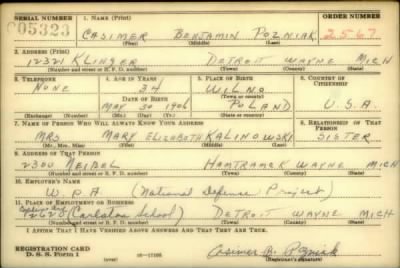 SERIAL NUMBER 1. NAME (Print) ORDER NUMBER
005323 CASIMER BENJAMIN POZNIAK 2567
(First) (Middle) (Last)
2. ADDRESS (Print)
12321 KLINGER DETROIT WAYNE MICH
(Number and street or R. F. D. number) (Town) (County) (State)
3. TELEPHONE 4. AGE IN YEARS 5. PLACE OF BIRTH 6. COUNTRY OF CITIZENSHIP
NONE 34 WILNO
DATE OF BIRTH (Town or county)
MAY 30 1906 POLAND U.S.A.
(Exchange) (Number) (Mo.) (Day) (Yr.) (State or country)
7. NAME OF PERSON WHO WILL ALWAYS KNOW YOUR ADDRESS 8. RELATIONSHIP OF THAT PERSON
MRS MARY ELIZABETH KALINOWSKI SISTER
(Mr., Mrs., Miss) (First) (Middle) (Last)
9. ADDRESS OF THAT PERSON
2300 NEIBEL HAMTRAMCK WAYNE MICH
(Number and street or R. F. D. number) (Town) (County) (State)
10. EMPLOYER'S NAME
W.P.A (National Defense Project)
11. PLACE OF EMPLOYMENT OR BUSINESS
(School) DETROIT WAYNE MICH
(Number and street or R. F. D. number) (Town) (County) (State)
I AFFIRM THAT I HAVE VERIFIED ABOVE ANSWERS AND THAT THEY ARE TRUE.
REGISTRATION CARD
D. S. S. Form 1 (over) 16-17105 Casimer B. Pozniak
(Registrant's signature)